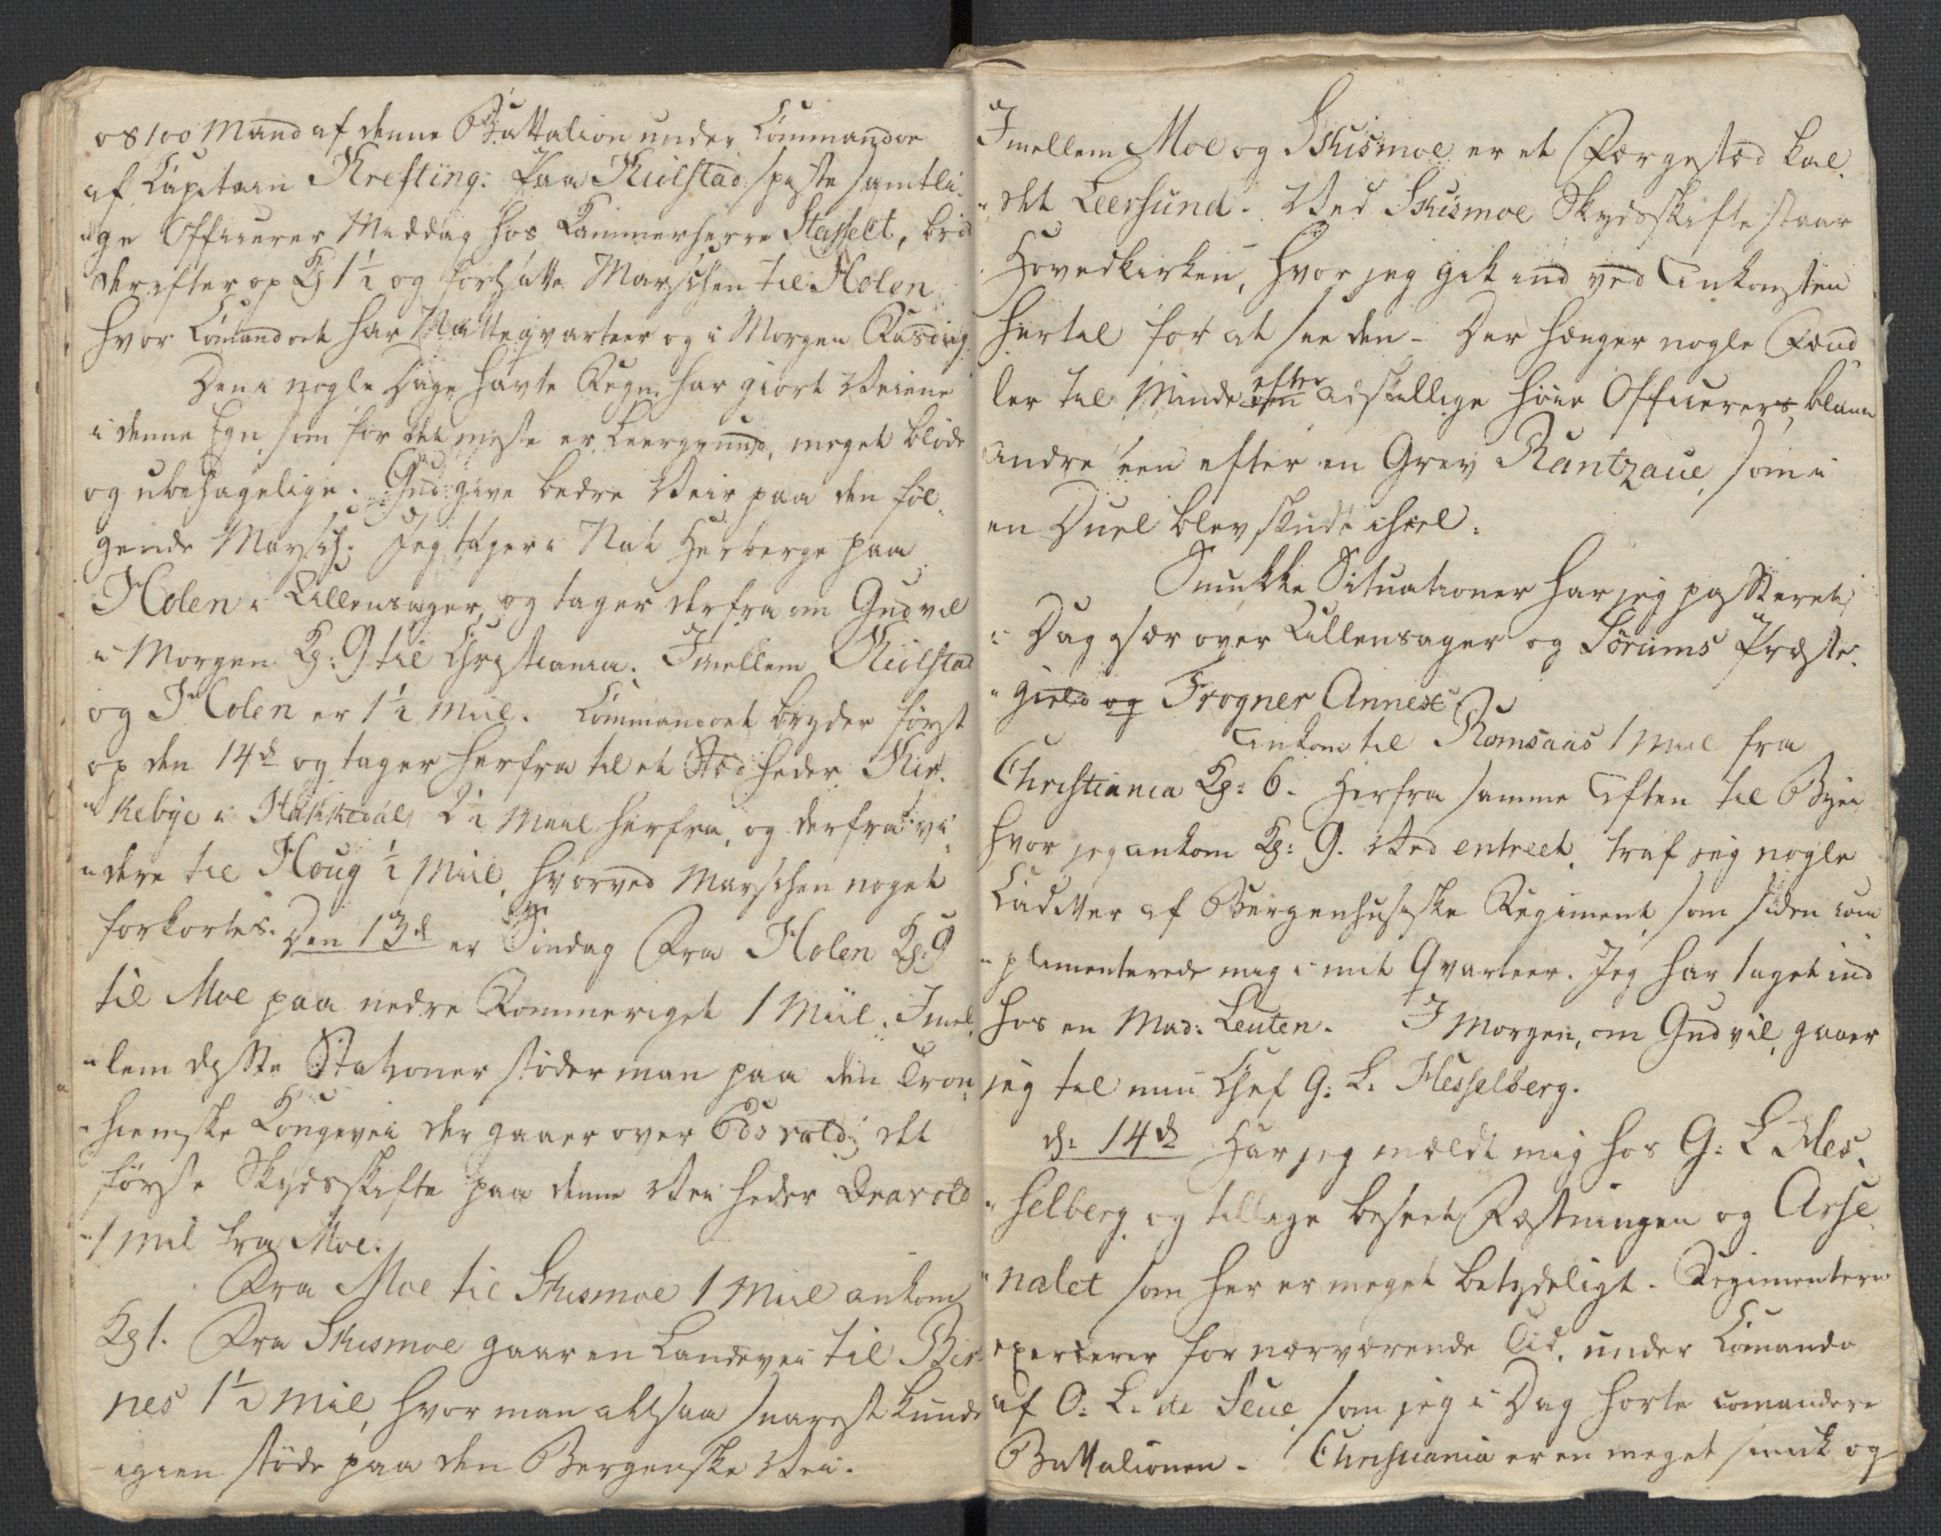 os 100 Mand af denne Battalion under Commandoe
af Capitain Krefting. Paa Kiølstad spiste samtli-
ge Officerer Middag hos Kammerherre Stasfelt, brød
derefter op Kl 1½ og fortsatte Marschen til Holen
hvor Comandoet har Natteqvarteer og i Morgen Rastdag.
Den i nogle Dage havte Regn har giort Veiene
i denne Egn, som for det meste er Leergrund, meget bløde
og ubehagelige. Gud give bedre Veir paa den føl-
gende Marsch. Jeg tager i Nat Herberge paa
Holen i Ullensager, og tager derfra om Gud vil
i Morgen Kl: 9 til Christiania. Imellem Kiølstad
og Holen er 1½ Miil. Commandoet bryder først
op den 14de og tager herfra til et Sted heder Kir-
kebye i Hakkedal, 2½ Miil herfra, og derfra vi-
dere til Houg ½ Miil, hvorved Marschen noget
forkortes. Den 13de er Søndag Fra Holen Kl. 9
til Moe paa nedre Rommeriget 1 Miil. Imel-
lem disse Stationer støder man paa den Tron-
hiemske Kongevei der gaaer over Eidsvold; det
første Skydsskifte paa denne Vei heder
1 Mil fra Moe.
Fra Moe til Skismoe 1 Miil ankom
Kl 1. Fra Skismoe gaar en Landevei til
nes 1½ Mil, hvor man altsaa snarest kunde
igien støde paa den Bergenske Vei.
Imellem Moe og Skismoe er et Færgested kal-
det Leersund. Ved Skismoe Skydsskifte staar
Hovedkirken, hvor jeg gik ind ved Ankomsten
hertil for at see den - Der hænger nogle Fænd-
ler til Minde efter adskillige høie Officerer, blant
andre een efter en Grev Rantzaue, som i
en Duel blev skudt ihiel.
Smukke Situationer har jeg passeret i
Dag især over Ullensager og Sørums Præste-
gield og Frogner Annex
Ankom til Romsaas 1 Miil fra
Christiania Kl: 6. Herfra samme Aften til Byen
hvor jeg ankom Kl: 9. Ved entreet, traf jeg nogle
Cadetter af Bergenhusiske Regiment, som siden com-
plementerede mig i mit Qvarteer. Jeg har taget ind
hos en Mad: Leuten. I Morgen, om Gud vil, gaaer
jeg til min Chef G: L: Hesselberg.
d: 14de Har jeg meldt mig hos G: L Hes-
selberg, og tillige beseet Fæstningen og Arse-
nalet som her er meget betydeligt. Regimentern
exercerer for nærværende Tid, under Comando
af O: L. de Seue, som jeg i Dag hørte comandere
Battalionen. Christiania er en meget smuk og